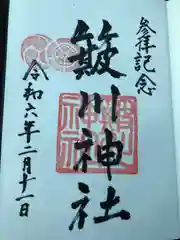 参拝記念
簸川神社
簸川
神社
令和六年二月十一日